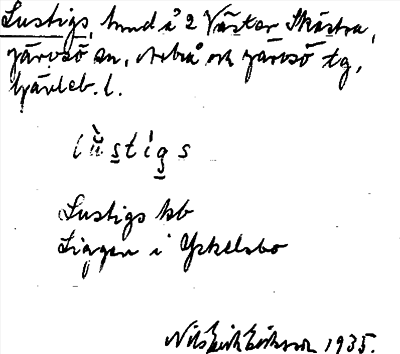 Lustigs, hmd å 2 Väster Skästra,
Järvsö sn, Arbrå och Järvsö tg,
Gävleb. l.
lùstigs
Lustigs hb
Ligger i Yxkelsbo
Nils Erik Eriksson 1935.